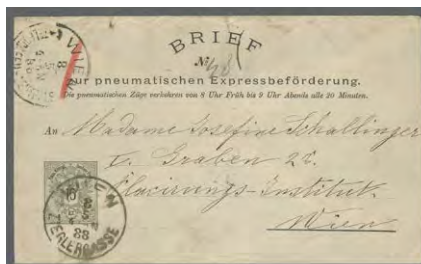 BRIEF
No.
zur pneumatischen Expressbeförderung.
Die pneumatischen Züge verkehren von 8 Uhr Früh bis 9 Uhr Abends alle 20 Minuten.
An Madame Josefine Schallinger
Graben 28.
Placirungs-Institut.
Wien
WIEN
8
WIEN
88
ZIEGLERGASSE